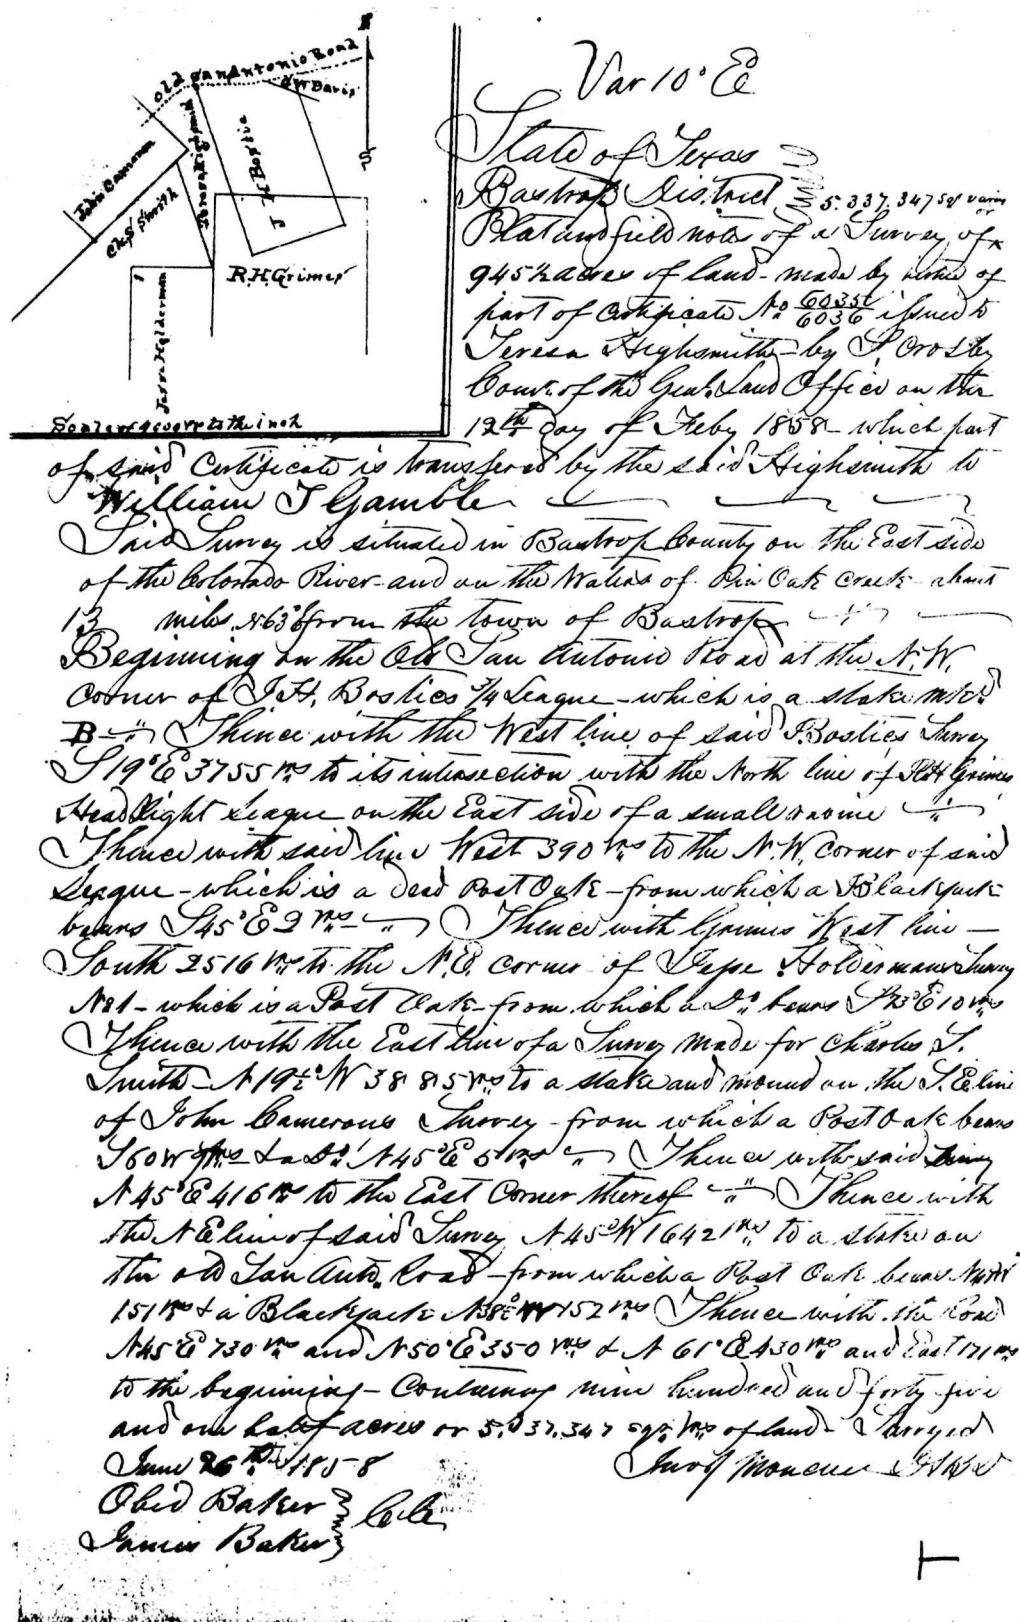 Old San Antonio Road
J W Davis
John Cameron
Chs. S. Smith
J H Bostic
R. H. Grimes
Jesse Holderman
Scale of 4000 vrs to the inch
Var 10° E
State of Texas
Bastrop District 5.337.347 sqr varas
Plat and field notes of a Survey of
945½ acres of land - made by virtue of
part of Certificate No. issued to
Teresa Highsmith - by S. Crosby
Comr. of the Genl. Land Office on the
12th day of Feby 1858 - which part
of said Certificate is transfered by the said Highsmith to
William T Gamble
Said Survey is situated in Bastrop County on the East side
of the Colorado River and on the Waters of Pin Oak Creek about
13 miles N63°E from the town of Bastrop
Beginning on the Old San Antonio Road at the N.W.
corner of J. H. Bostics ¾ League - which is a stake mkd
B - " Thence with the West line of said J. Bostics Survey
S 19° E 3755 vrs to its intersection with the North line of R H Grimes
Head Right League on the East side of a small ravine
Thence with said line West 390 vrs to the N.W. corner of said
League - which is a dead Post Oak - from which a Blackjack
bears S45°E 2 vrs - " Thence with Grimes West line -
South 2516 vrs to the N.E. corner of Jesse Holdermans Survey
No 1 - which is a Post Oak - from which a Do bears E 10 vrs
Thence with the East line of a Survey made for Charles S.
Smith - N 19½° W 3885 vrs to a stake and mound on the S.E. line
of John Camerons Survey - from which a Post Oak bears
S 60 W vrs & a Do. N45°E 5 vrs " Thence with said
N 45° E 416 vrs to the East Corner thereof " Thence with
the N E line of said Survey N 45° W 1642 vrs to a stake on
the old San Anto. Road - from which a Post Oak bears
151 vrs & a Blackjack W 152 vrs Thence with the Road
N45°E 730 vrs and N50°E 350 vrs & N 61°E 430 vrs and East 171 vrs
to the beginning - Containing nine hundred and forty five
and one half acres or 5.337.347 sqr. vrs of land - Surveyed
June 26th 1858
Obed Baker
James Baker